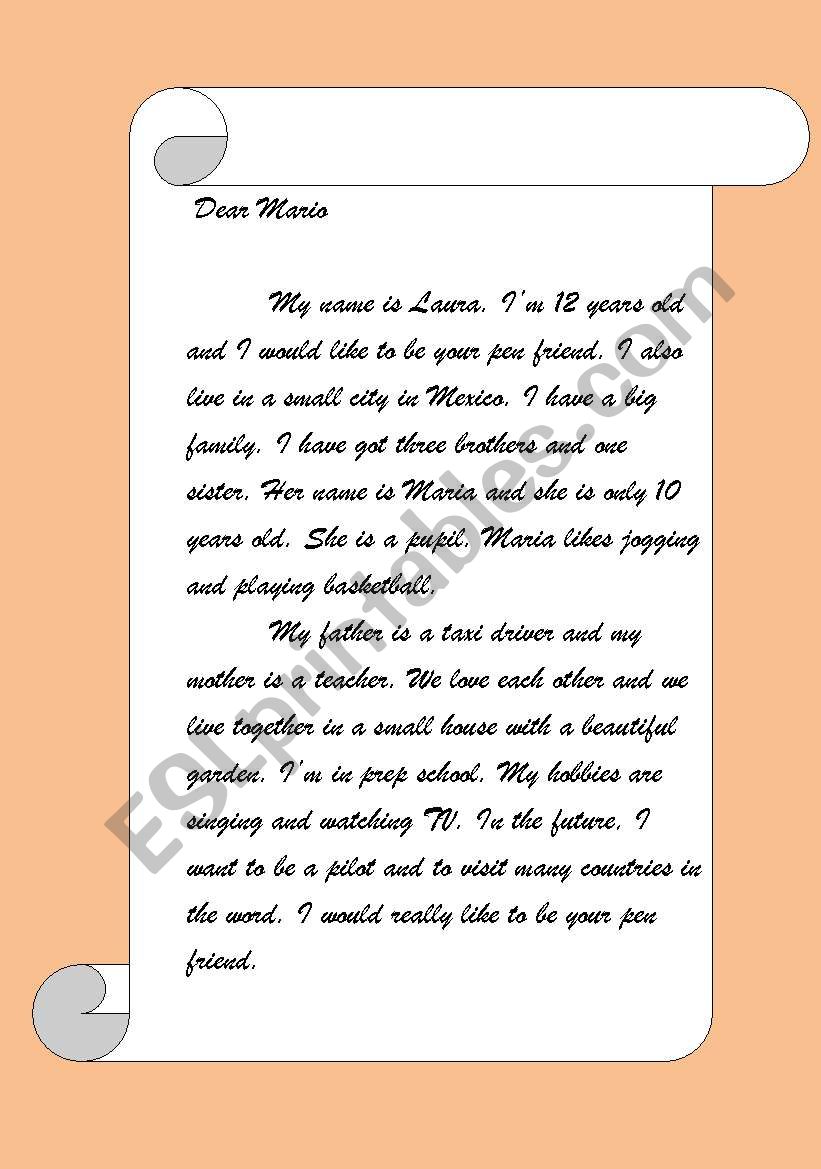 Dear Mario
My name is Laura. I'm 12 years old
and I would like to be your pen friend. I also
live in a small city in Mexico. I have a big
family. I have got three brothers and one
sister. Her name is Maria and she is only 10
years old. She is a pupil. Maria likes jogging
and playing basketball.
My father is a taxi driver and my
mother is a teacher. We love each other and we
live together in a small house with a beautiful
garden. I'm in prep school. My hobbies are
singing and watching TV. In the future, I
want to be a pilot and to visit many countries in
the word. I would really like to be your pen
friend.
ESLprintables.com